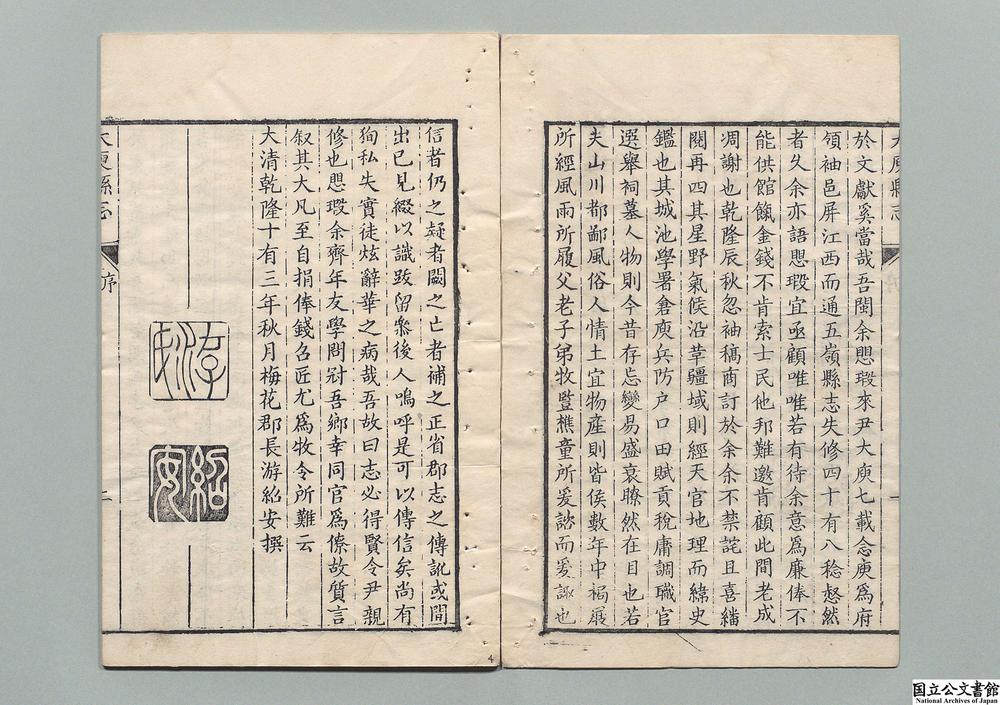 於文獻奚當哉吾閩余愳瑕來尹大庾七載念庾爲府
領袖邑屏江西而通五嶺縣志失修四十有八稔惄然
者久余亦語愳瑕宜亟顧唯唯若有待余意爲廉俸不
能供館餼金錢不肯索士民他邦難邀肯顧此間老成
凋謝也乾隆辰秋忽袖稿商訂於余余不禁詫且喜繙
閱再四其星野氣候沿革疆域則經天官地理而緯史
鑑也其城池學署倉庾兵防户口田賦貢稅庸調職官
選舉祠墓人物則今昔存忘變易盛衰瞭然在目也若
夫山川都鄙風俗人情土宜物產則皆侯數年中褐屐
所經風雨所履父老子弟牧豎樵童所爰諮而爰諏也
信者仍之疑者闕之亡者補之正省郡志之傳訛或間
出己見綴以識跋留叅後人嗚呼是可以傳信矣尚有
狥私失實徒炫辭華之病哉吾故曰志必得賢令尹親
修也愳瑕余齊年友學問冠吾鄉幸同官爲僚故質言
叙其大凡至自捐俸錢召匠尤爲牧令所難云
大清乾隆十有三年秋月梅花郡長游紹安撰
大庾縣志
序
一
紹安
4
国立公文書館
National Archives of Japan